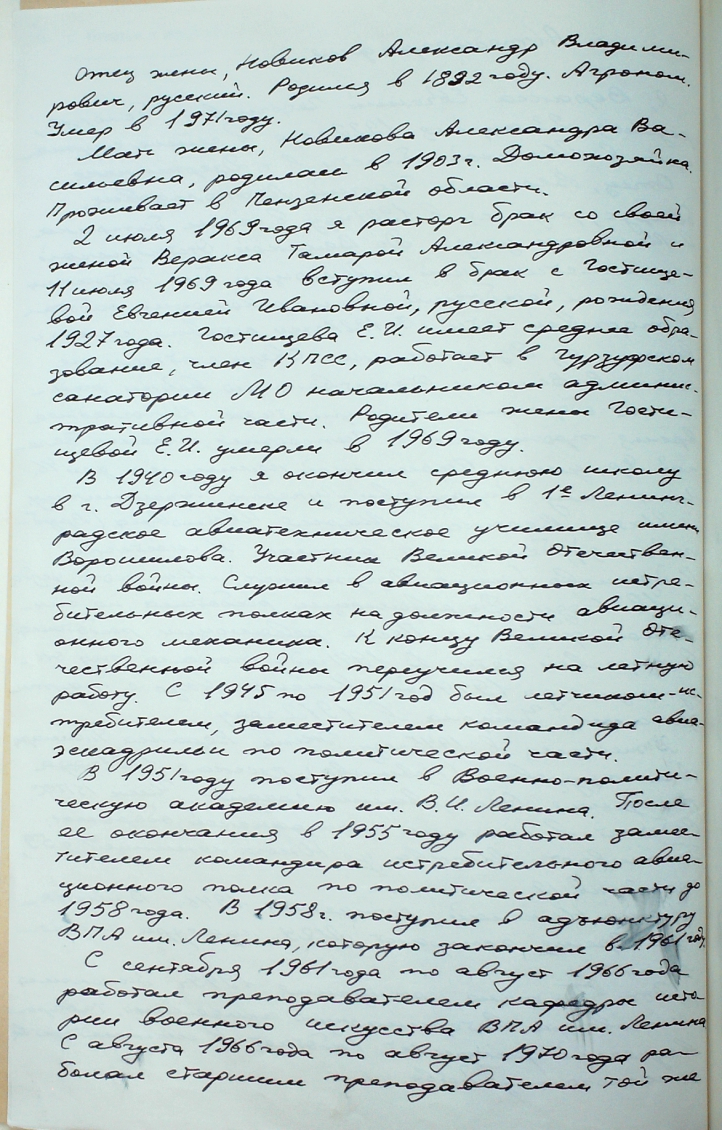 Отец жены, Новиков Александр Владими-
рович, русский. Родился в 1892 году. Агроном.
Умер в 1971 году.
Мать жены, Новикова Александра Ва-
сильевна, родилась в 1903 г. Домохозяйка.
Проживает в Пензенской области.
2 июля 1969 года я расторг брак со своей
женой Веракса Тамарой Александровной и
11 июля 1969 года вступил в брак с Гостище-
вой Евгенией Ивановной, русской, рождения
1927 года. Гостищева Е.И. имеет среднее обра-
зование, член КПСС, работает в Гурзуфском
санатории МО начальником админис-
тративной части. Родители жены Гости-
щевой Е.И. умерли в 1969 году.
В 1940 году я окончил среднюю школу
в г. Дзержинске и поступил в 1е Ленинг-
радское авиатехническое училище имени
Ворошилова. Участник Великой Отечествен-
ной войны. Служил в авиационных истре-
бительных полках на должности авиаци-
онного механика. К концу Великой Оте-
чественной войны переучился на летную
работу. С 1945 по 1951 год был летчиком-ис-
требителем, заместителем командира авиа-
эскадрильи по политической части.
В 1951 году поступил в Военно-полити-
ческую академию им. В.И. Ленина. После
ее окончания в 1955 году работал замес-
тителем командира истребительного авиа-
ционного полка по политической части до
1958 года. В 1958 г. поступил в адъюнктуру
ВПА им. Ленина, которую закончил в 1961 году.
С сентября 1961 года по август 1966 года
работал преподавателем кафедры исто-
рии военного искусства ВПА им. Ленина
С августа 1966 года по август 1970 года ра-
ботал старшим преподавателем той же